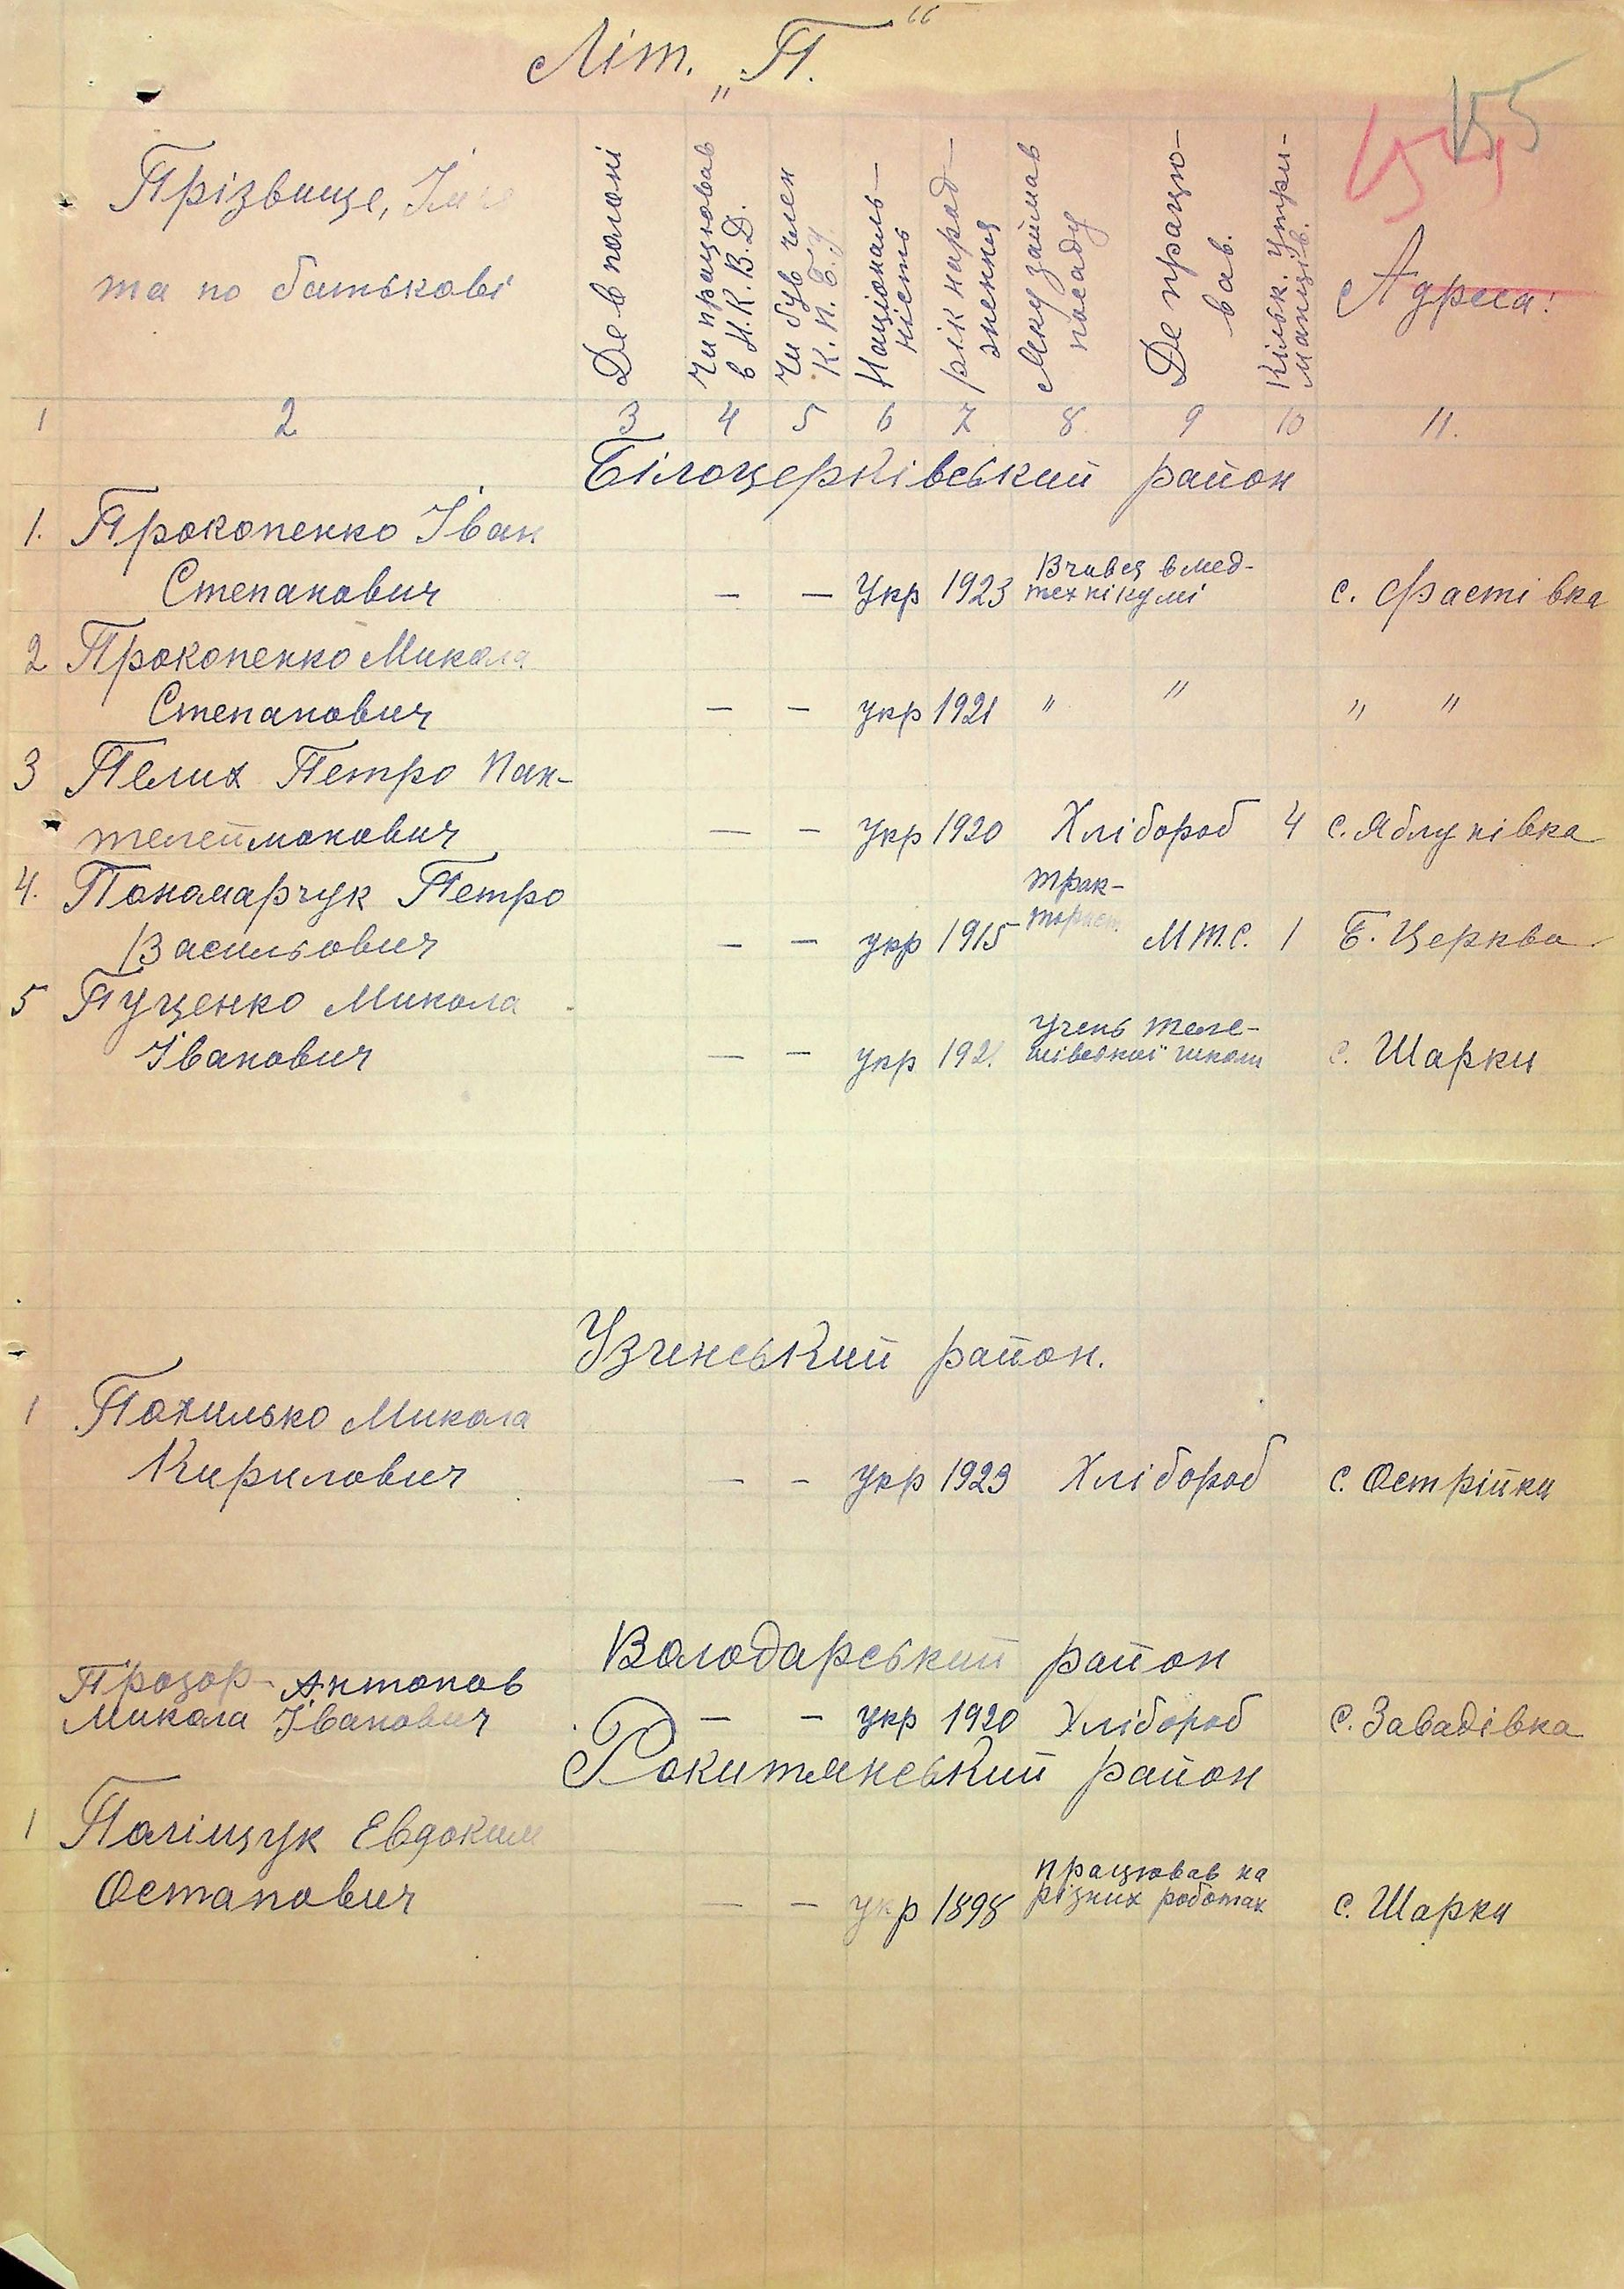 Літ. „П."
155
Прізвище, Імя
та по батькові
Де в полоні
Чи працював
в Н.К.В.Д.
Чи був член
К.П.б.У.
Національ-
ність
рік народ-
ження
Яку займав
посаду
Де працю-
вав.
Кільк. Утри-
манців.
Адреса:
1 2 3 4 5 6 7 8 9 10 11.
Білоцерківський район
1. Прокопенко Іван
Степанович — — Укр 1923 Вчився в мед-
технікумі с. Фастівка
2 Прокопенко Микола
Степанович — — укр 1921 " " " "
3 Пелих Петро Пан-
телеймонович — — укр 1920 Хлібороб 4 с. Яблунівка
4. Пономарчук Петро
Васильович — — укр 1915 Трак-
торист. М.т.с. 1 Б. Церква
5 Пуценко Микола
Іванович — — укр 192. учень
школи с. Шарки
Узинський район.
1 Похилько Микола
Кирилович — — укр 1923 Хлібороб с. Острійки
Володарський район
Прозор-Антонов
Микола Іванович — — укр 1920 Хлібороб с. Завадівка
Рокитянський район
1 Поліщук Евдоким
Остапович — — укр 1898 працював на
різних роботах с. Шарки